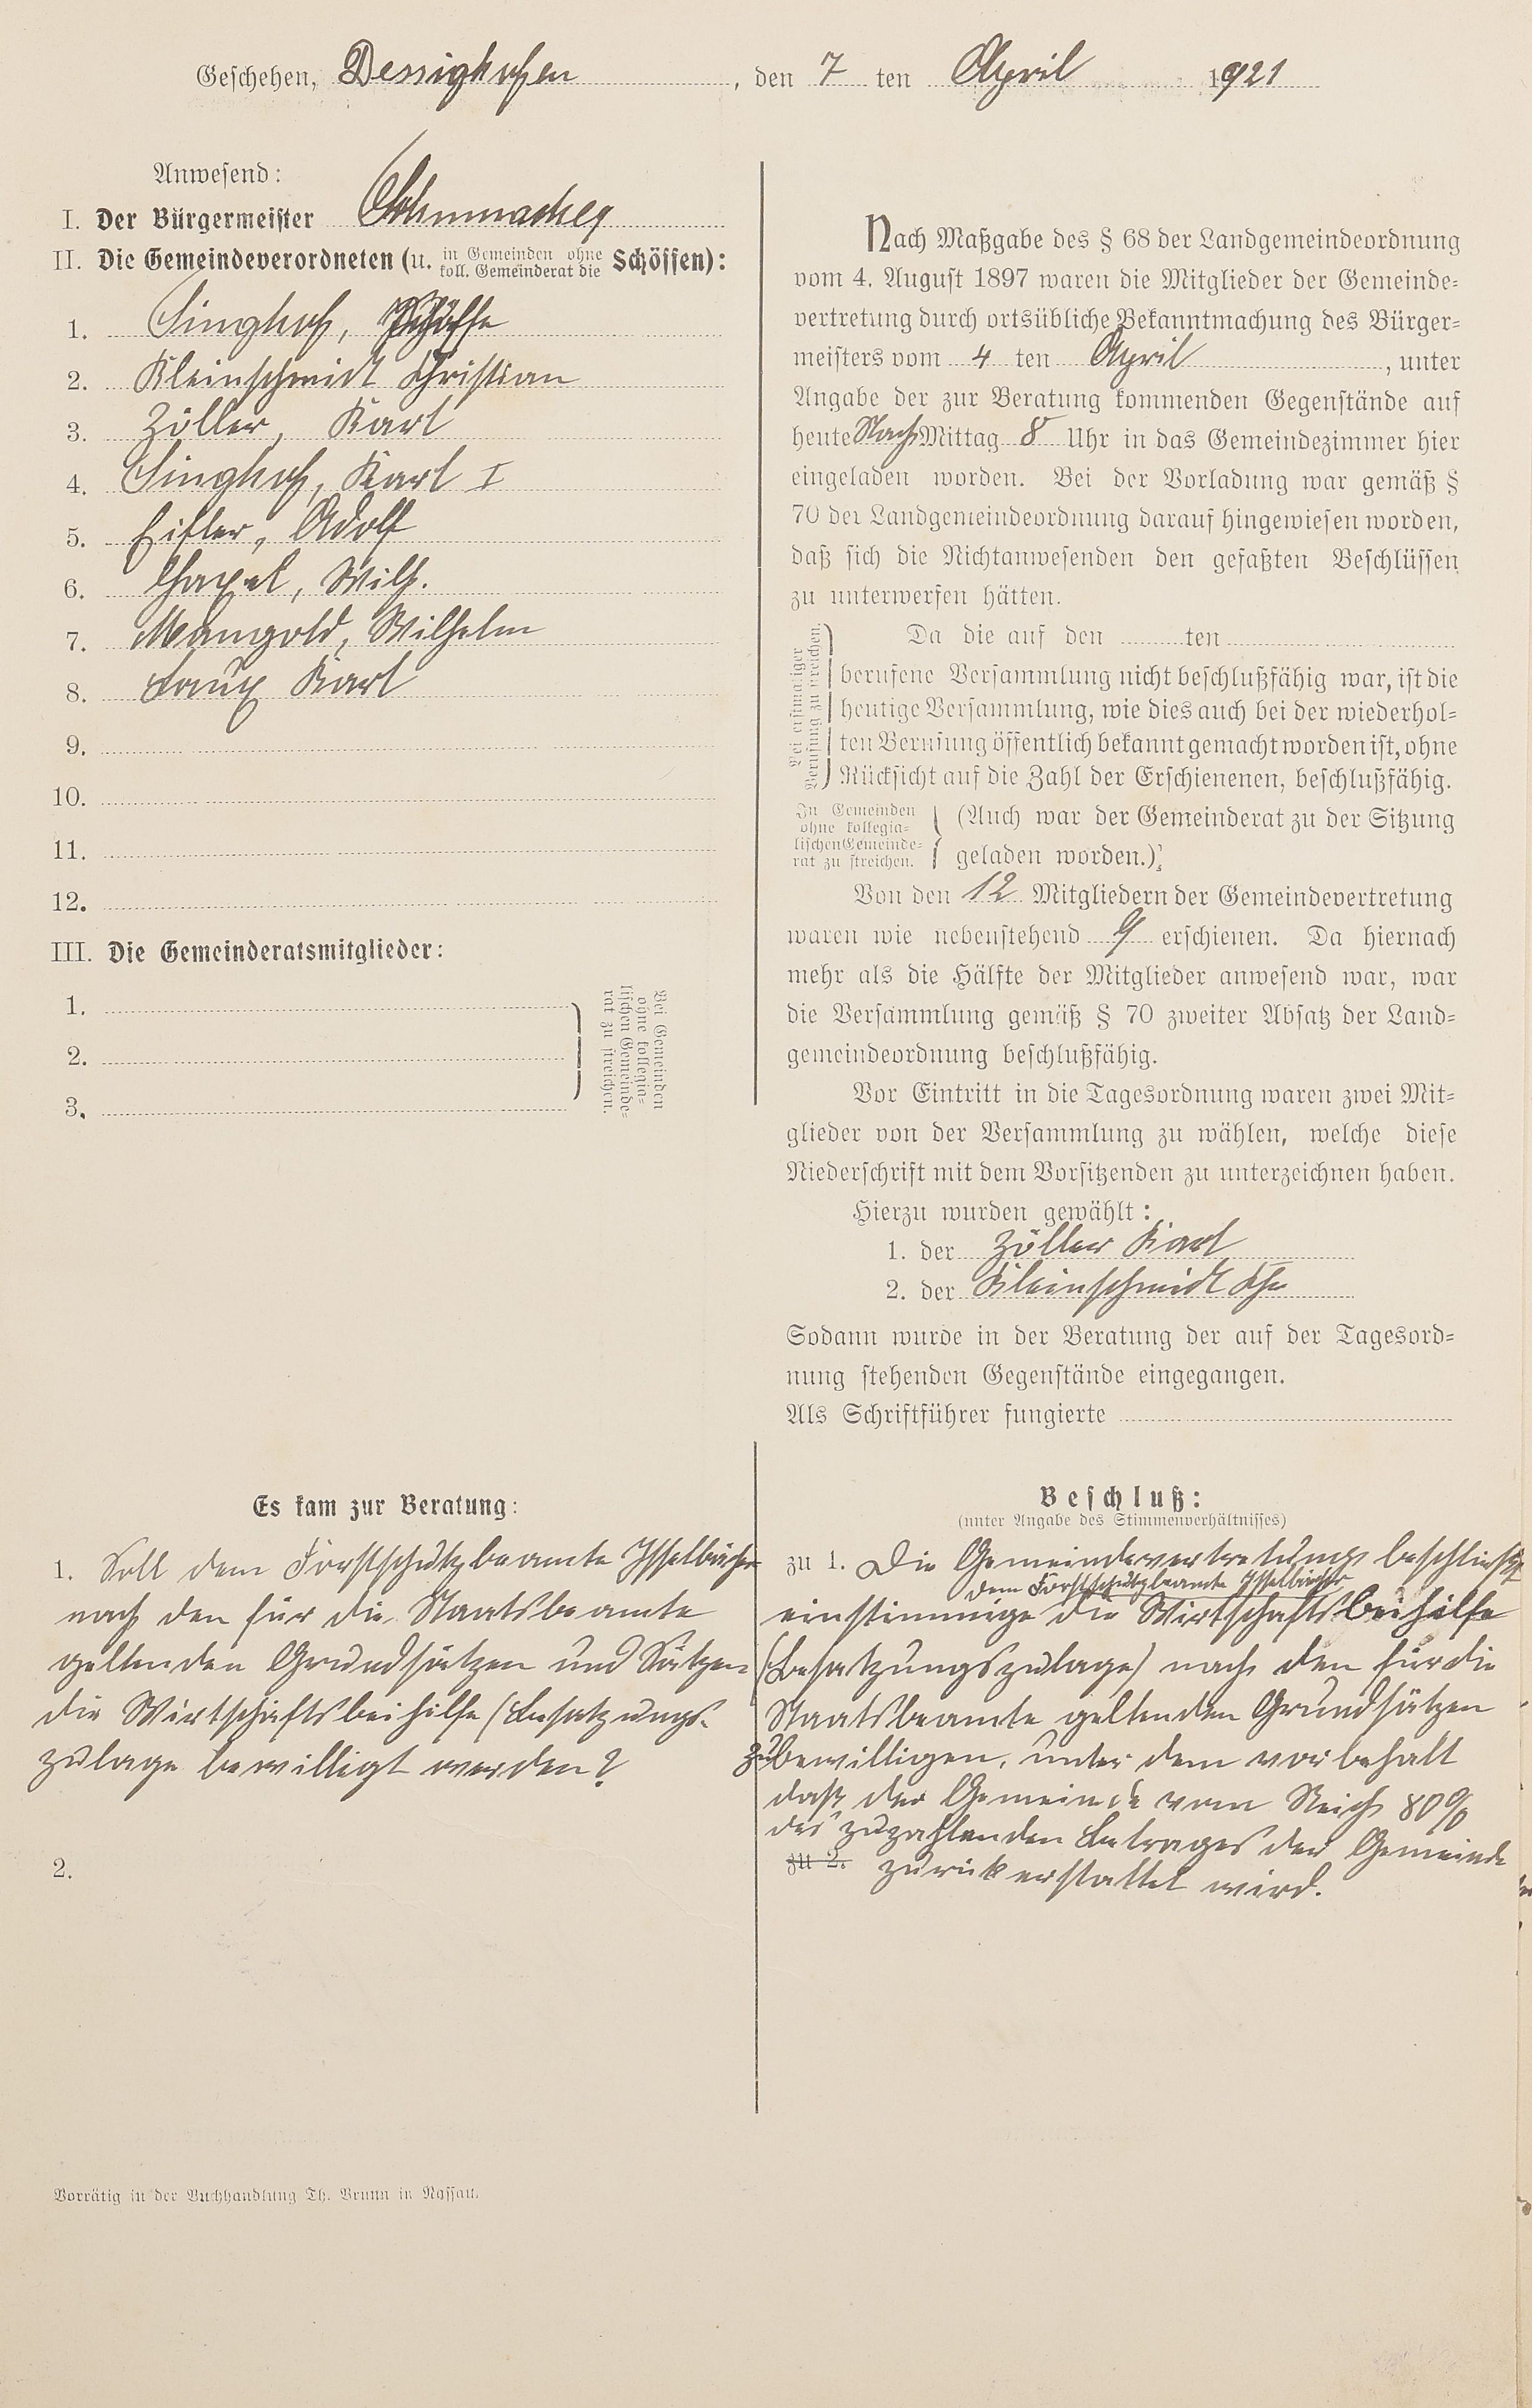 Geschehen, Dessighofen, den 7 ten April 1921
Anwesend:
I. Der Bürgermeister Schumacher
II. Die Gemeindeverordneten (u. in Gemeinden ohne koll. Gemeinderat die Schöffen):
1. Singhof, Schöffe
2. Kleinschmidt Christian
3. Zöller, Karl
4. Singhof, Karl I
5. Eifler, Adolf
6. Wilh.
7. Mangold, Wilhelm
8. Laux Karl
9.
10.
11.
12.
III. Die Gemeinderatsmitglieder:
1.
2.
3.
Bei Gemeinden
ohne kollegia-
lischen Gemeinde-
rat zu streichen.
Nach Maßgabe des § 68 der Landgemeindeordnung
vom 4. August 1897 waren die Mitglieder der Gemeinde-
vertretung durch ortsübliche Bekanntmachung des Bürger-
meisters vom 4 ten April, unter
Angabe der zur Beratung kommenden Gegenstände auf
heute Nach Mittag 8 Uhr in das Gemeindezimmer hier
eingeladen worden. Bei der Vorladung war gemäß §
70 der Landgemeindeordnung darauf hingewiesen worden,
daß sich die Nichtanwesenden den gefaßten Beschlüssen
zu unterwerfen hätten.
Bei erstmaliger
Berufung zu streichen.
Da die auf den ten
berufene Versammlung nicht beschlußfähig war, ist die
heutige Versammlung, wie dies auch bei der wiederhol-
ten Berufung öffentlich bekannt gemacht worden ist, ohne
Rücksicht auf die Zahl der Erschienenen, beschlußfähig.
In Gemeinden
ohne kollegia-
lischen Gemeinde-
rat zu streichen.
(Auch war der Gemeinderat zu der Sitzung
geladen worden.)
Von den 12 Mitgliedern der Gemeindevertretung
waren wie nebenstehend 9 erschienen. Da hiernach
mehr als die Hälfte der Mitglieder anwesend war, war
die Versammlung gemäß § 70 zweiter Absatz der Land-
gemeindeordnung beschlußfähig.
Vor Eintritt in die Tagesordnung waren zwei Mit-
glieder von der Versammlung zu wählen, welche diese
Niederschrift mit dem Vorsitzenden zu unterzeichnen haben.
Hierzu wurden gewählt:
1. der Zöller Karl
2. der Kleinschmidt Chr
Sodann wurde in der Beratung der auf der Tagesord-
nung stehenden Gegenstände eingegangen.
Als Schriftführer fungierte
Es kam zur Beratung:
1. Soll dem Forstschutzbeamte Isselbächer
nach den für die Staatsbeamte
geltenden Grundsätzen und Sätzen
die Wirtschaftsbeihilfe (Besatzungs-
zulage bewilligt werden?
2.
Beschluß:
(unter Angabe des Stimmenverhältnisses)
zu 1. Die Gemeindevertretung beschließt
dem Forstschutzbeamte Isselbächer
einstimmige die Wirtschaftsbeihilfe
(Besatzungszulage) nach den für die
Staatsbeamte geltenden Grundsätzen
zu bewilligen, unter dem vorbehalt
daß der Gemeinde vom Reich 80%
des zuzahlenden Betrages der Gemeinde
zu 2. zurückerstattet wird.
Vorrätig in der Buchhandlung Th. Brunn in Nassau.